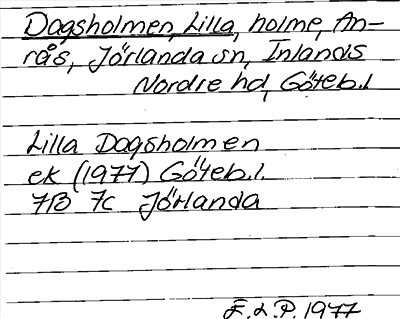 Dagsholmen, Lilla, holme, An-
rås, Jörlanda sn, Inlands
Nordre hd, Göteb.l
Lilla Dagsholmen
ek (1977) Göteb.l.
7B 7c Jörlanda
F.L.P. 1977